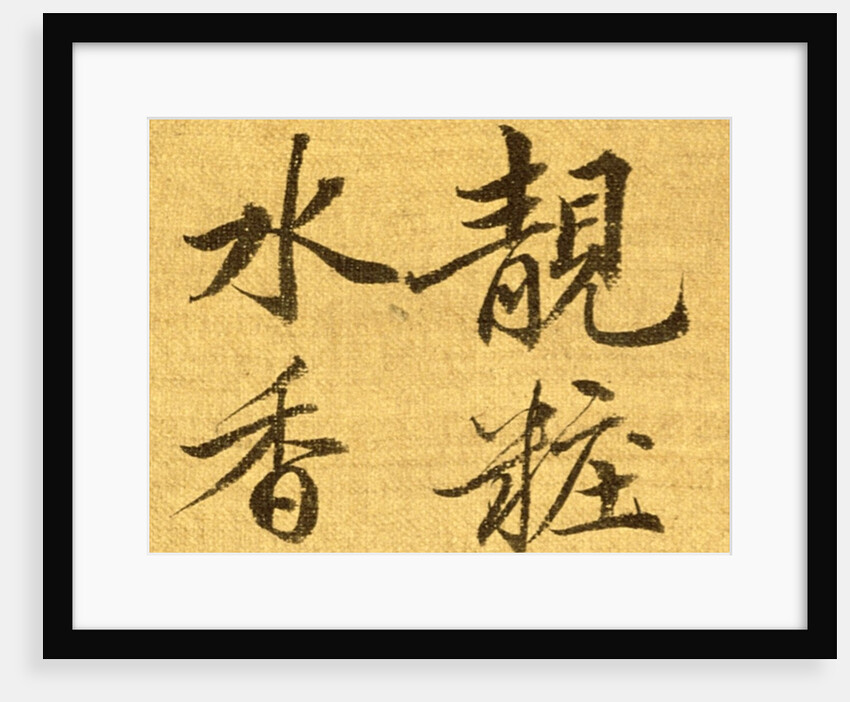 靚粧
水香